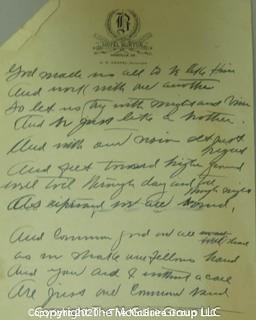 B
HOTEL BURTON
God made us all to be like Him
And work with one another
So let us try with might and vim
And be just like a brother.
And with our vision set just
beyond
And feet toward higher ground
We'll toil through day and
through night
And upward we are bound.
And common good our all
as we shake our fellows hand
And you and I without a care
Are just one common band
Copyright 2020 - The McGuire Group LLC